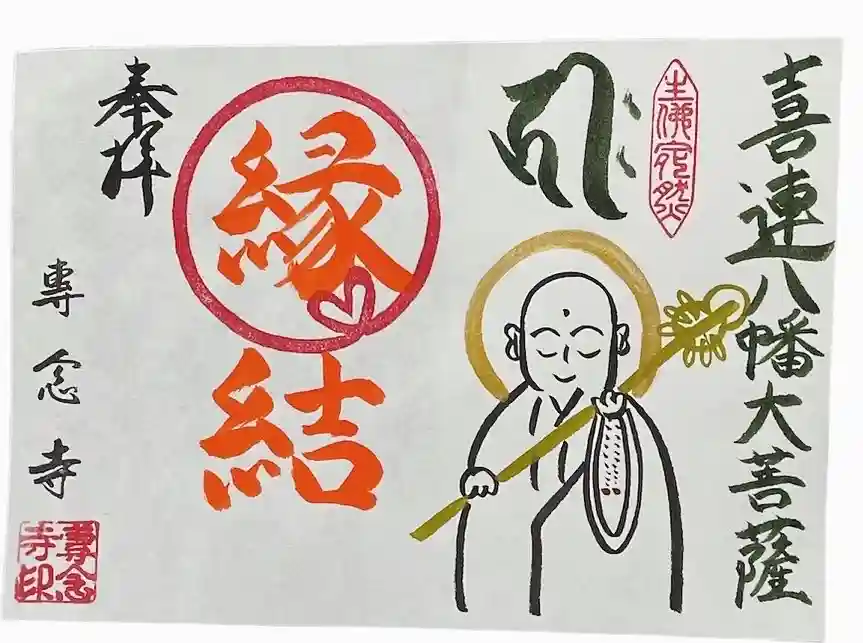 喜連八幡大菩薩
生佛宛然
縁
結
奉拝
專念寺
專念寺印